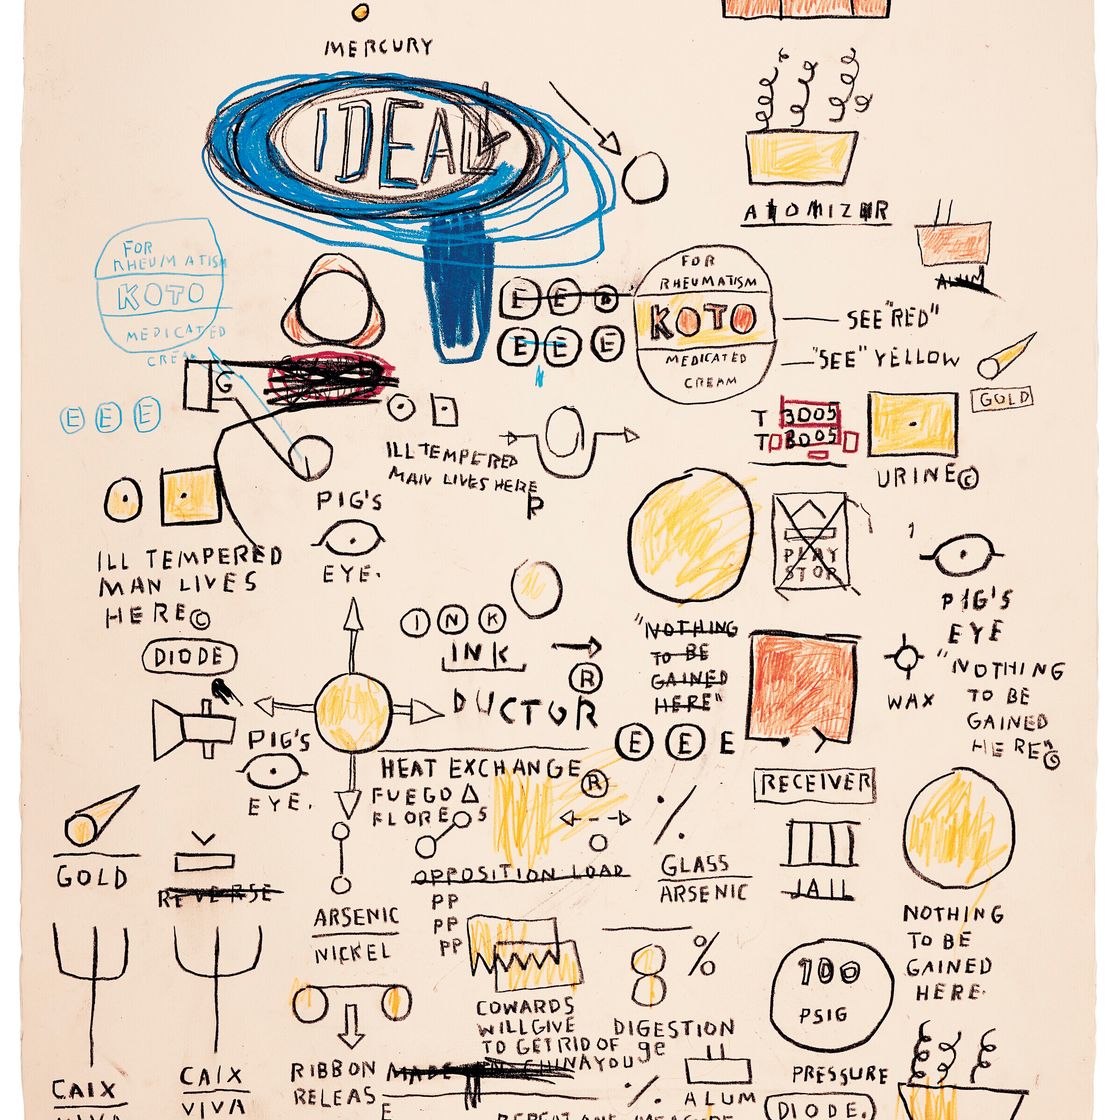 MERCURY
IDEAL
ATOMIZER
ALUM
FOR
RHEUMATISM
KOTO
MEDICATED
CREAM
FOR
RHEUMATISM
KOTO
MEDICATED
CREAM
E E E
E E E
SEE "RED"
"SEE" YELLOW
GOLD
G
E E E
T 3005
T 3005
URINE©
ILL TEMPERED
MAN LIVES HERE
R
PIG'S
EYE.
ILL TEMPERED
MAN LIVES
HERE©
PLAY
STOP
PIG'S
EYE
DIODE
INK
INK
®
DUCTOR
"NOTHING
TO BE
GAINED
HERE"
WAX
"NOTHING
TO BE
GAINED
HERE"©
E E E
PIG'S
EYE.
HEAT EXCHANGE
®
FUEGO
FLORES
RECEIVER
GOLD
REVERSE
OPPOSITION LOAD
PP
PP
PP
GLASS
ARSENIC
JAIL
ARSENIC
NICKEL
NOTHING
TO BE
GAINED
HERE.
8 %
100
PSIG
COWARDS
WILL GIVE
TO GET RID OF
YOU
DIGESTION
ge
RIBBON
RELEAS
E
MADE IN CHINA
%
ALUM
PRESSURE
DIODE.
CAIX
VIVA
CAIX
VIVA
REPEAT ANY MEASURE